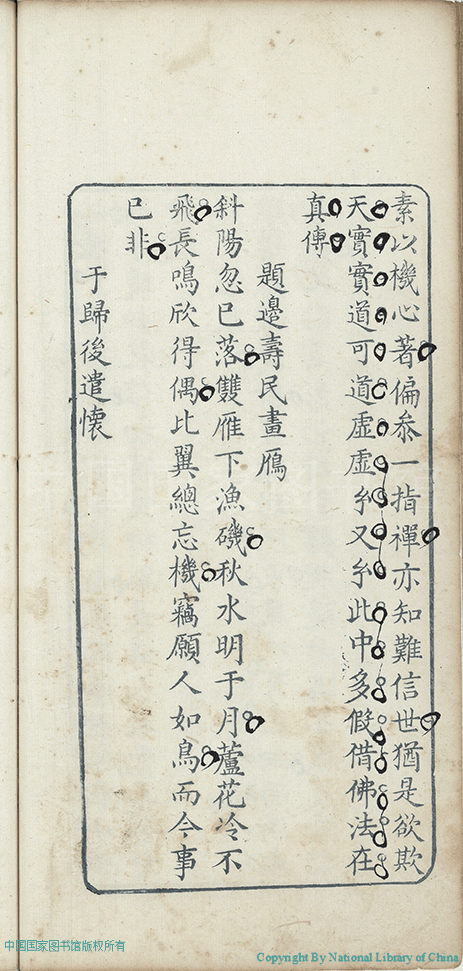 素以機心著偏叅一指禪亦知難信世猶是欲欺
天實實道可道虛虛𤣥又𤣥此中多假借佛法在
真傳
題邊壽民畫鴈
斜陽忽已落雙雁下漁磯秋水明于月蘆花冷不
飛長鳴欣得偶比翼總忘機竊願人如鳥而今事
已非
于歸後遣懷
中国国家图书馆版权所有
Copyright By National Library of China